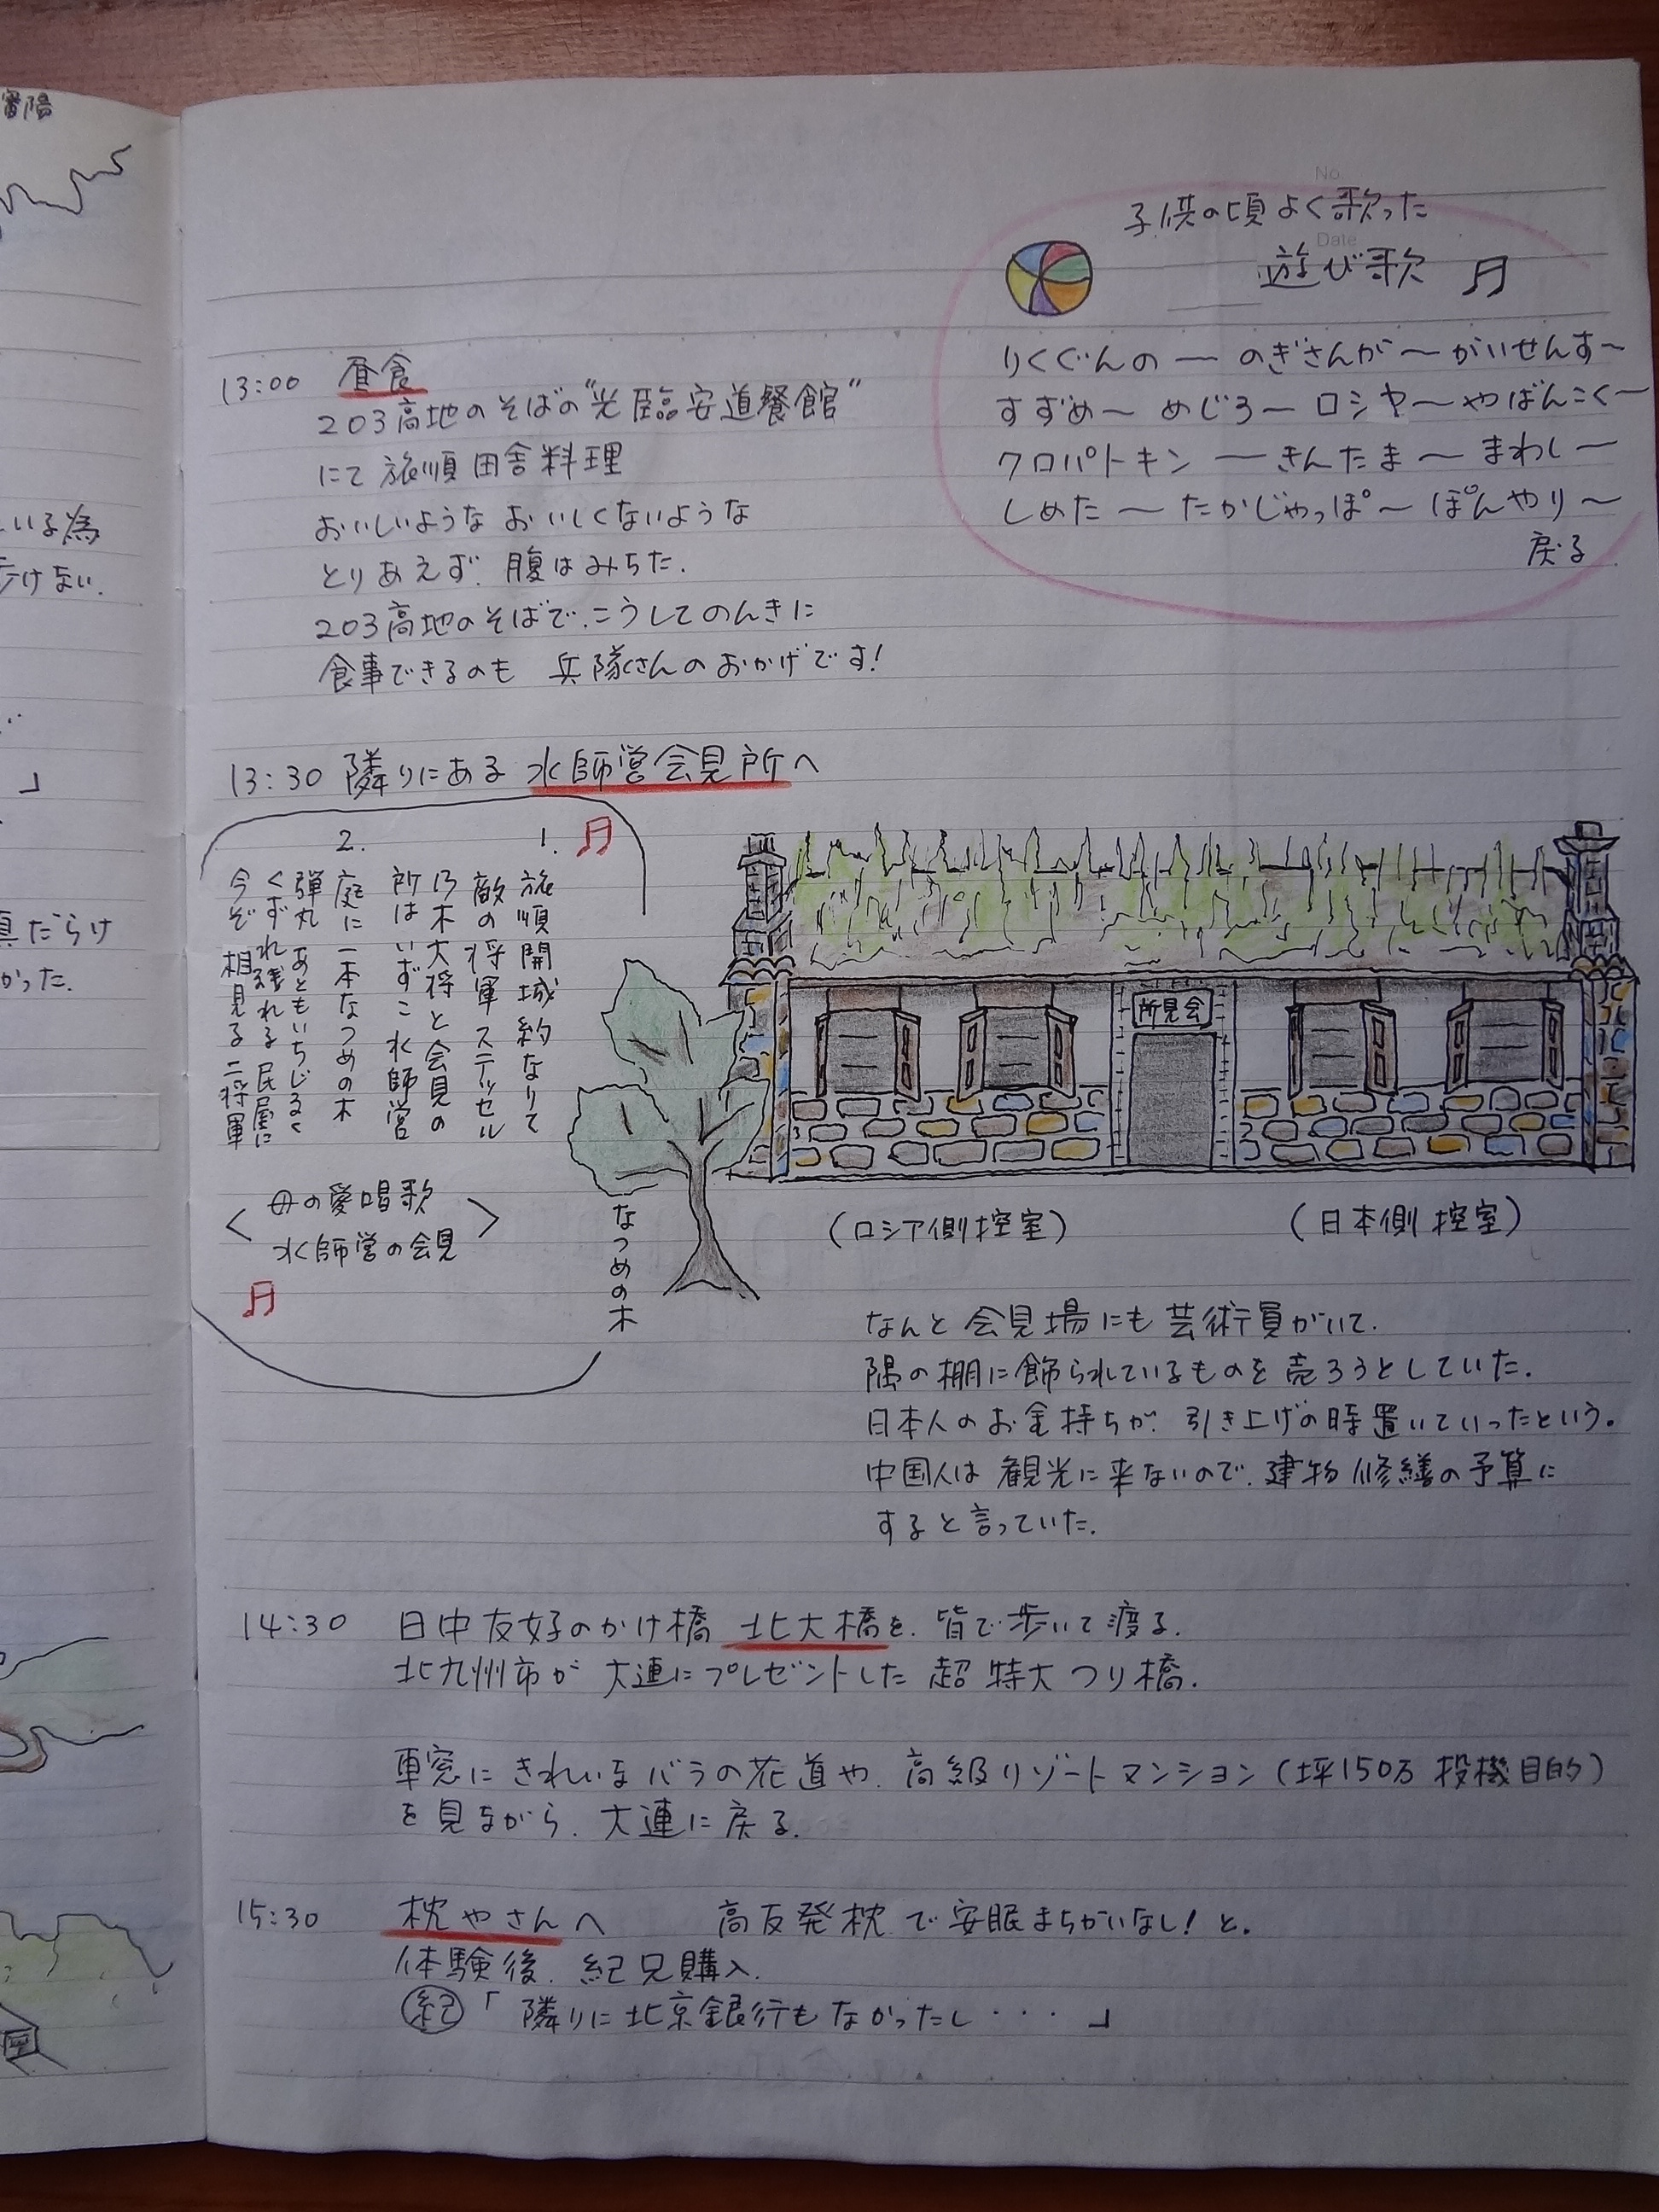 審陽
いる為
歩けない.
」
真だらけ
かった.
No.
Date
子供の頃よく歌った
遊び歌 ♫
りくぐんの ー のぎさんが 〜 がいせんす〜
すずめ〜 めじろ〜 ロシヤ〜やばんこく〜
クロパトキン ー きんたま 〜 まわし ー
しめた 〜 たかじゃっぽ 〜 ぽんやり 〜
戻る
13:00 昼食
203高地のそばの"光臨安道餐館"
にて 旅順田舎料理
おいしいような おいしくないような
とりあえず. 腹はみちた.
203高地のそばで. こうしてのんきに
食事できるのも 兵隊さんのおかげです!
13:30 隣りにある 水師営会見所へ
♫
1. 旅順開城 約なりて
敵の将軍 ステッセル
乃木大将と会見の
所はいずこ 水師営
2. 庭に一本なつめの木
弾丸 あともいちじるく
くずれ残れる 民屋に
今ぞ 相見る 二将軍
< 母の愛唱歌
水師営の会見 >
♫
所見会
なつめの木
(ロシア側控室)
(日本側 控室)
なんと 会見場にも 芸術員がいて.
隅の棚に飾られているものを 売ろうとしていた.
日本人のお金持ちが. 引き上げの時置いていったという。
中国人は 観光に来ないので. 建物 修繕の予算に
すると言っていた.
14:30 日中友好のかけ橋 北大橋を. 皆で歩いて渡る.
北九州市が 大連にプレゼントした 超特大つり橋.
車窓に きれいなバラの花道や. 高級リゾートマンション (坪150万 投機目的)
を見ながら. 大連に戻る.
15:30 枕やさんへ 高反発枕で安眠まちがいなし! と.
体験後. 紀兄購入.
㊞紀「 隣りに北京銀行もなかったし ・・・ 」